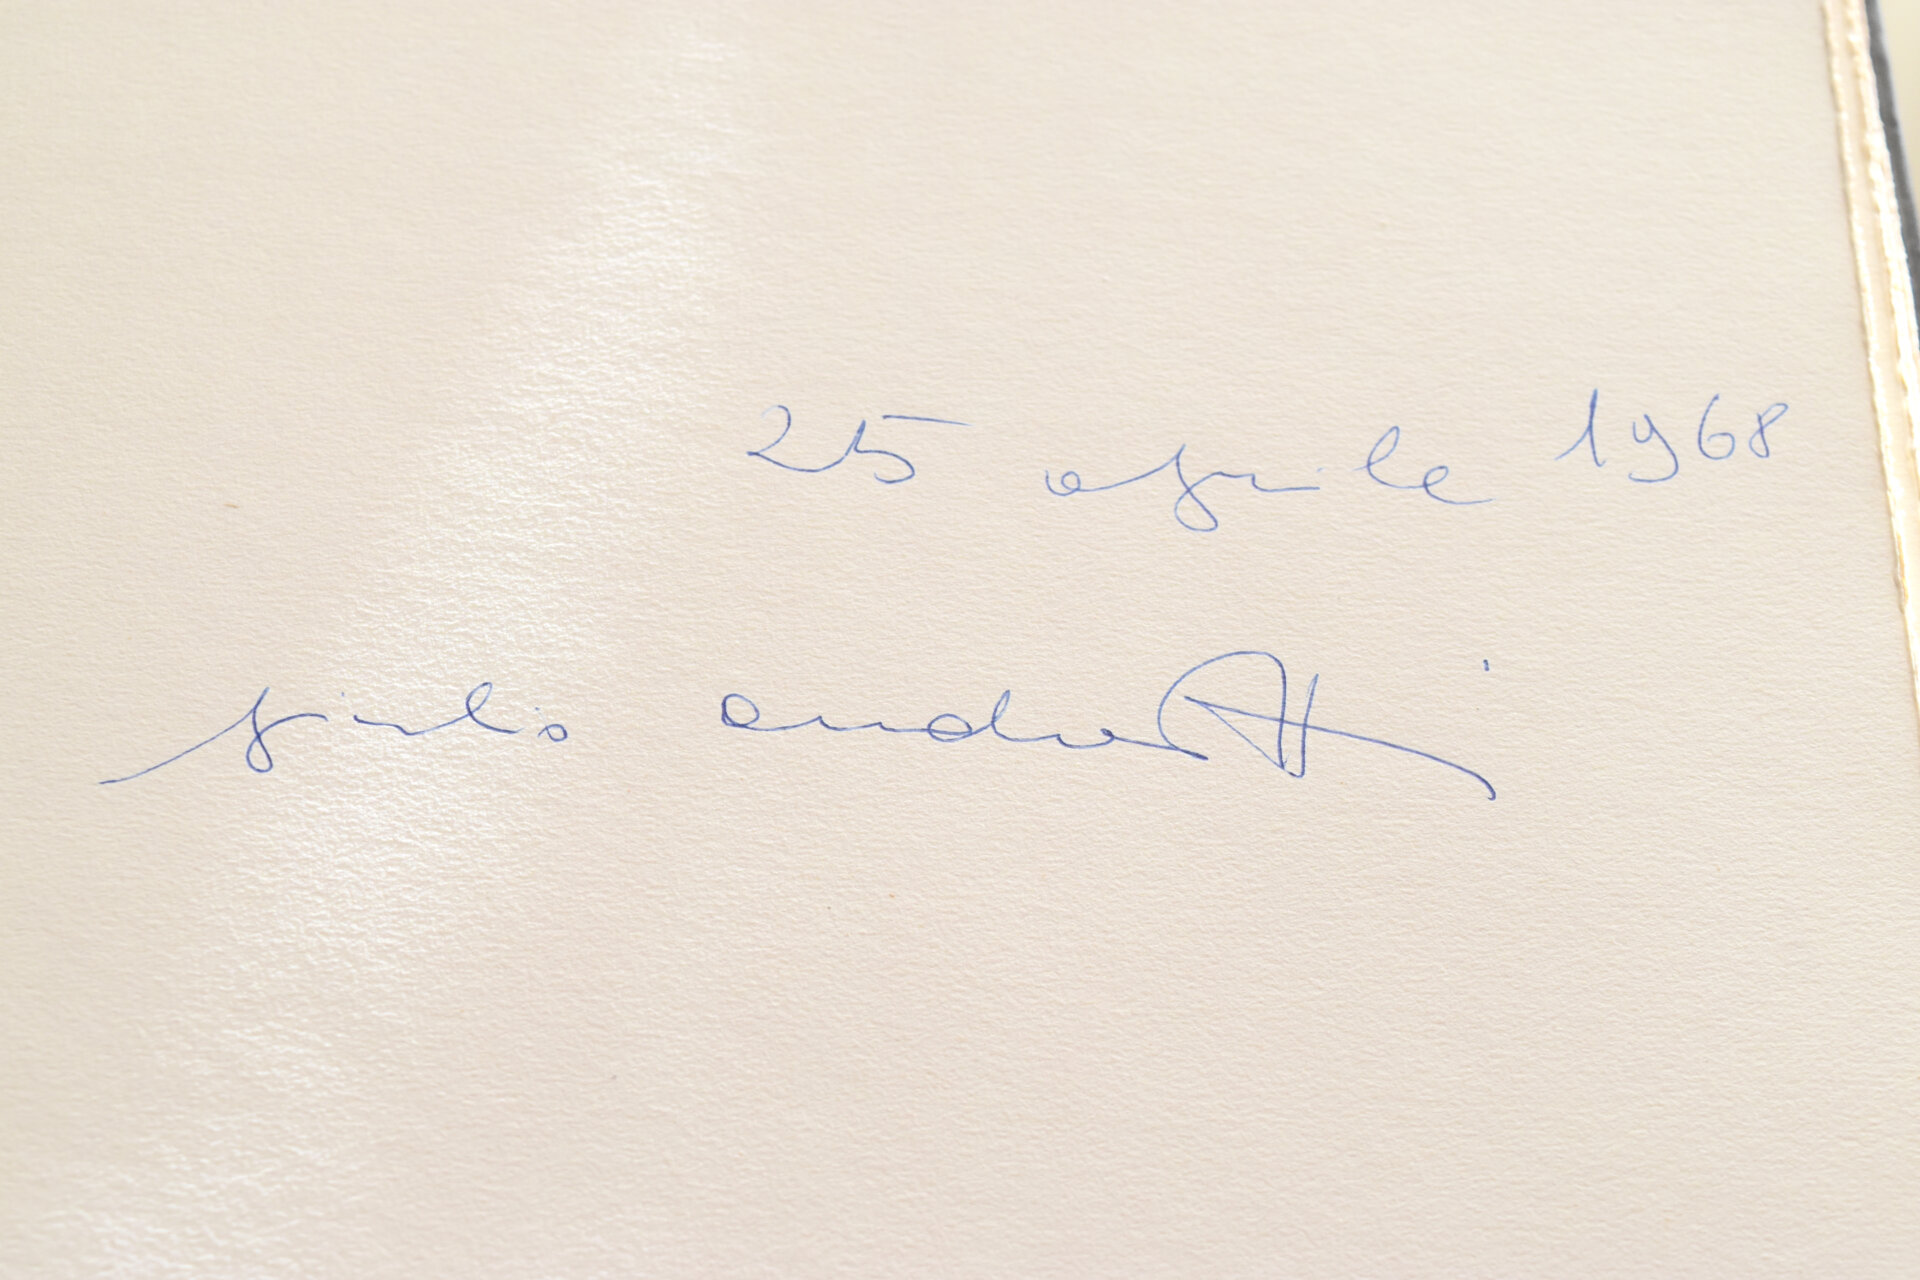 25 aprile 1968
giulio andreotti